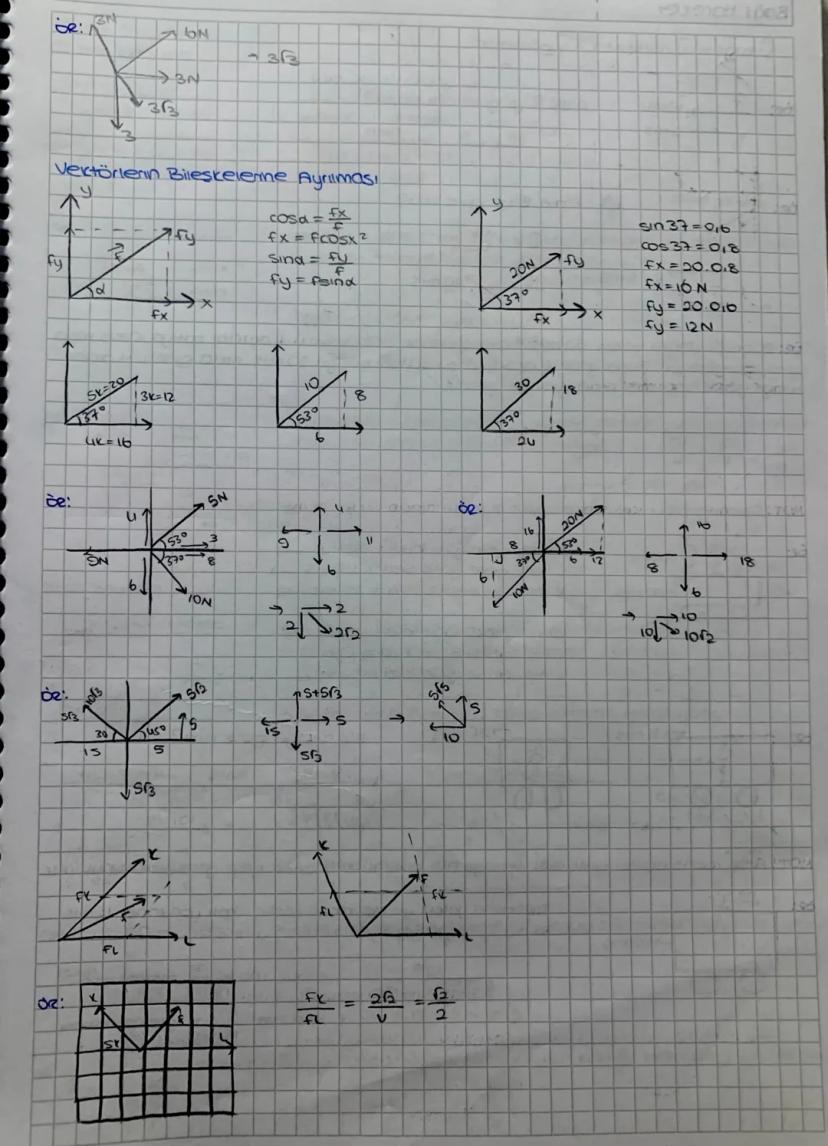 ÖR:
3N
6N
3N
3√3
3
- 3√3
Vektörlerin Bileskelerine Ayrılması
y
fy
F
fy
α
fx
x
cosα = fx/F
fx = Fcosx²
sinα = fy/F
fy = Fsinα
y
20N
fy
37°
fx
x
sin37 = 0,6
cos37 = 0,8
fx = 20.0,8
fx = 16 N
fy = 20.0,6
fy = 12N
5k=20
3k=12
37°
4k=16
10
8
53°
6
30
18
37°
24
ÖR:
4
5N
53°
3
5N
37°
8
6
10N
4
9
11
6
→
2
2
2√2
ÖR:
16
20N
8
53°
37°
6
12
6
10N
16
8
18
6
→
10
10
10√2
ÖR:
10√3
5√3
5√2
30
45°
5
15
5
5√3
5+5√3
15
5
5√3
→
5√5
5
10
K
fK
F
L
fL
K
F
fL
fK
L
ÖR:
K
F
L
fK/fL = 2√2/4 = √2/2